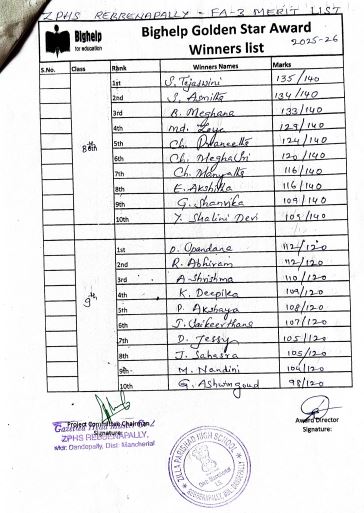 ZPHS REBBENAPALLY - FA-3 MERIT LIST
Bighelp for education
Bighelp Golden Star Award
Winners list 2025-26
S.No. Class Rank Winners Names Marks
1st S. Tejaswini 135/140
2nd S. Asmitha 134/140
3rd B. Meghana 133/140
4th Md. Zoya 129/140
5th Ch. 124/140
8th
6th Ch. 120/140
7th Ch. Manyatha 116/140
8th E. Akshitha 116/140
9th G. Shanvika 109/140
10th Y. Shalini Devi 105/140
1st D. 112/120
2nd R. Abhiram 111/120
3rd A Shrishma 110/120
4th K. Deepika 109/120
9th
5th P. Akshaya 108/120
6th J. Saikeerthana 107/120
7th D. Jessy 105/120
8th J. Sahasra 105/120
9th M. Nandini 104/120
10th G. Ashwingoud 98/120
Project Committee Chairman
Signature:
Award Director
Signature:
ZPHS REBBENAPALLY,
Dist: Mancherial
ZILLA PARISHAD HIGH SCHOOL